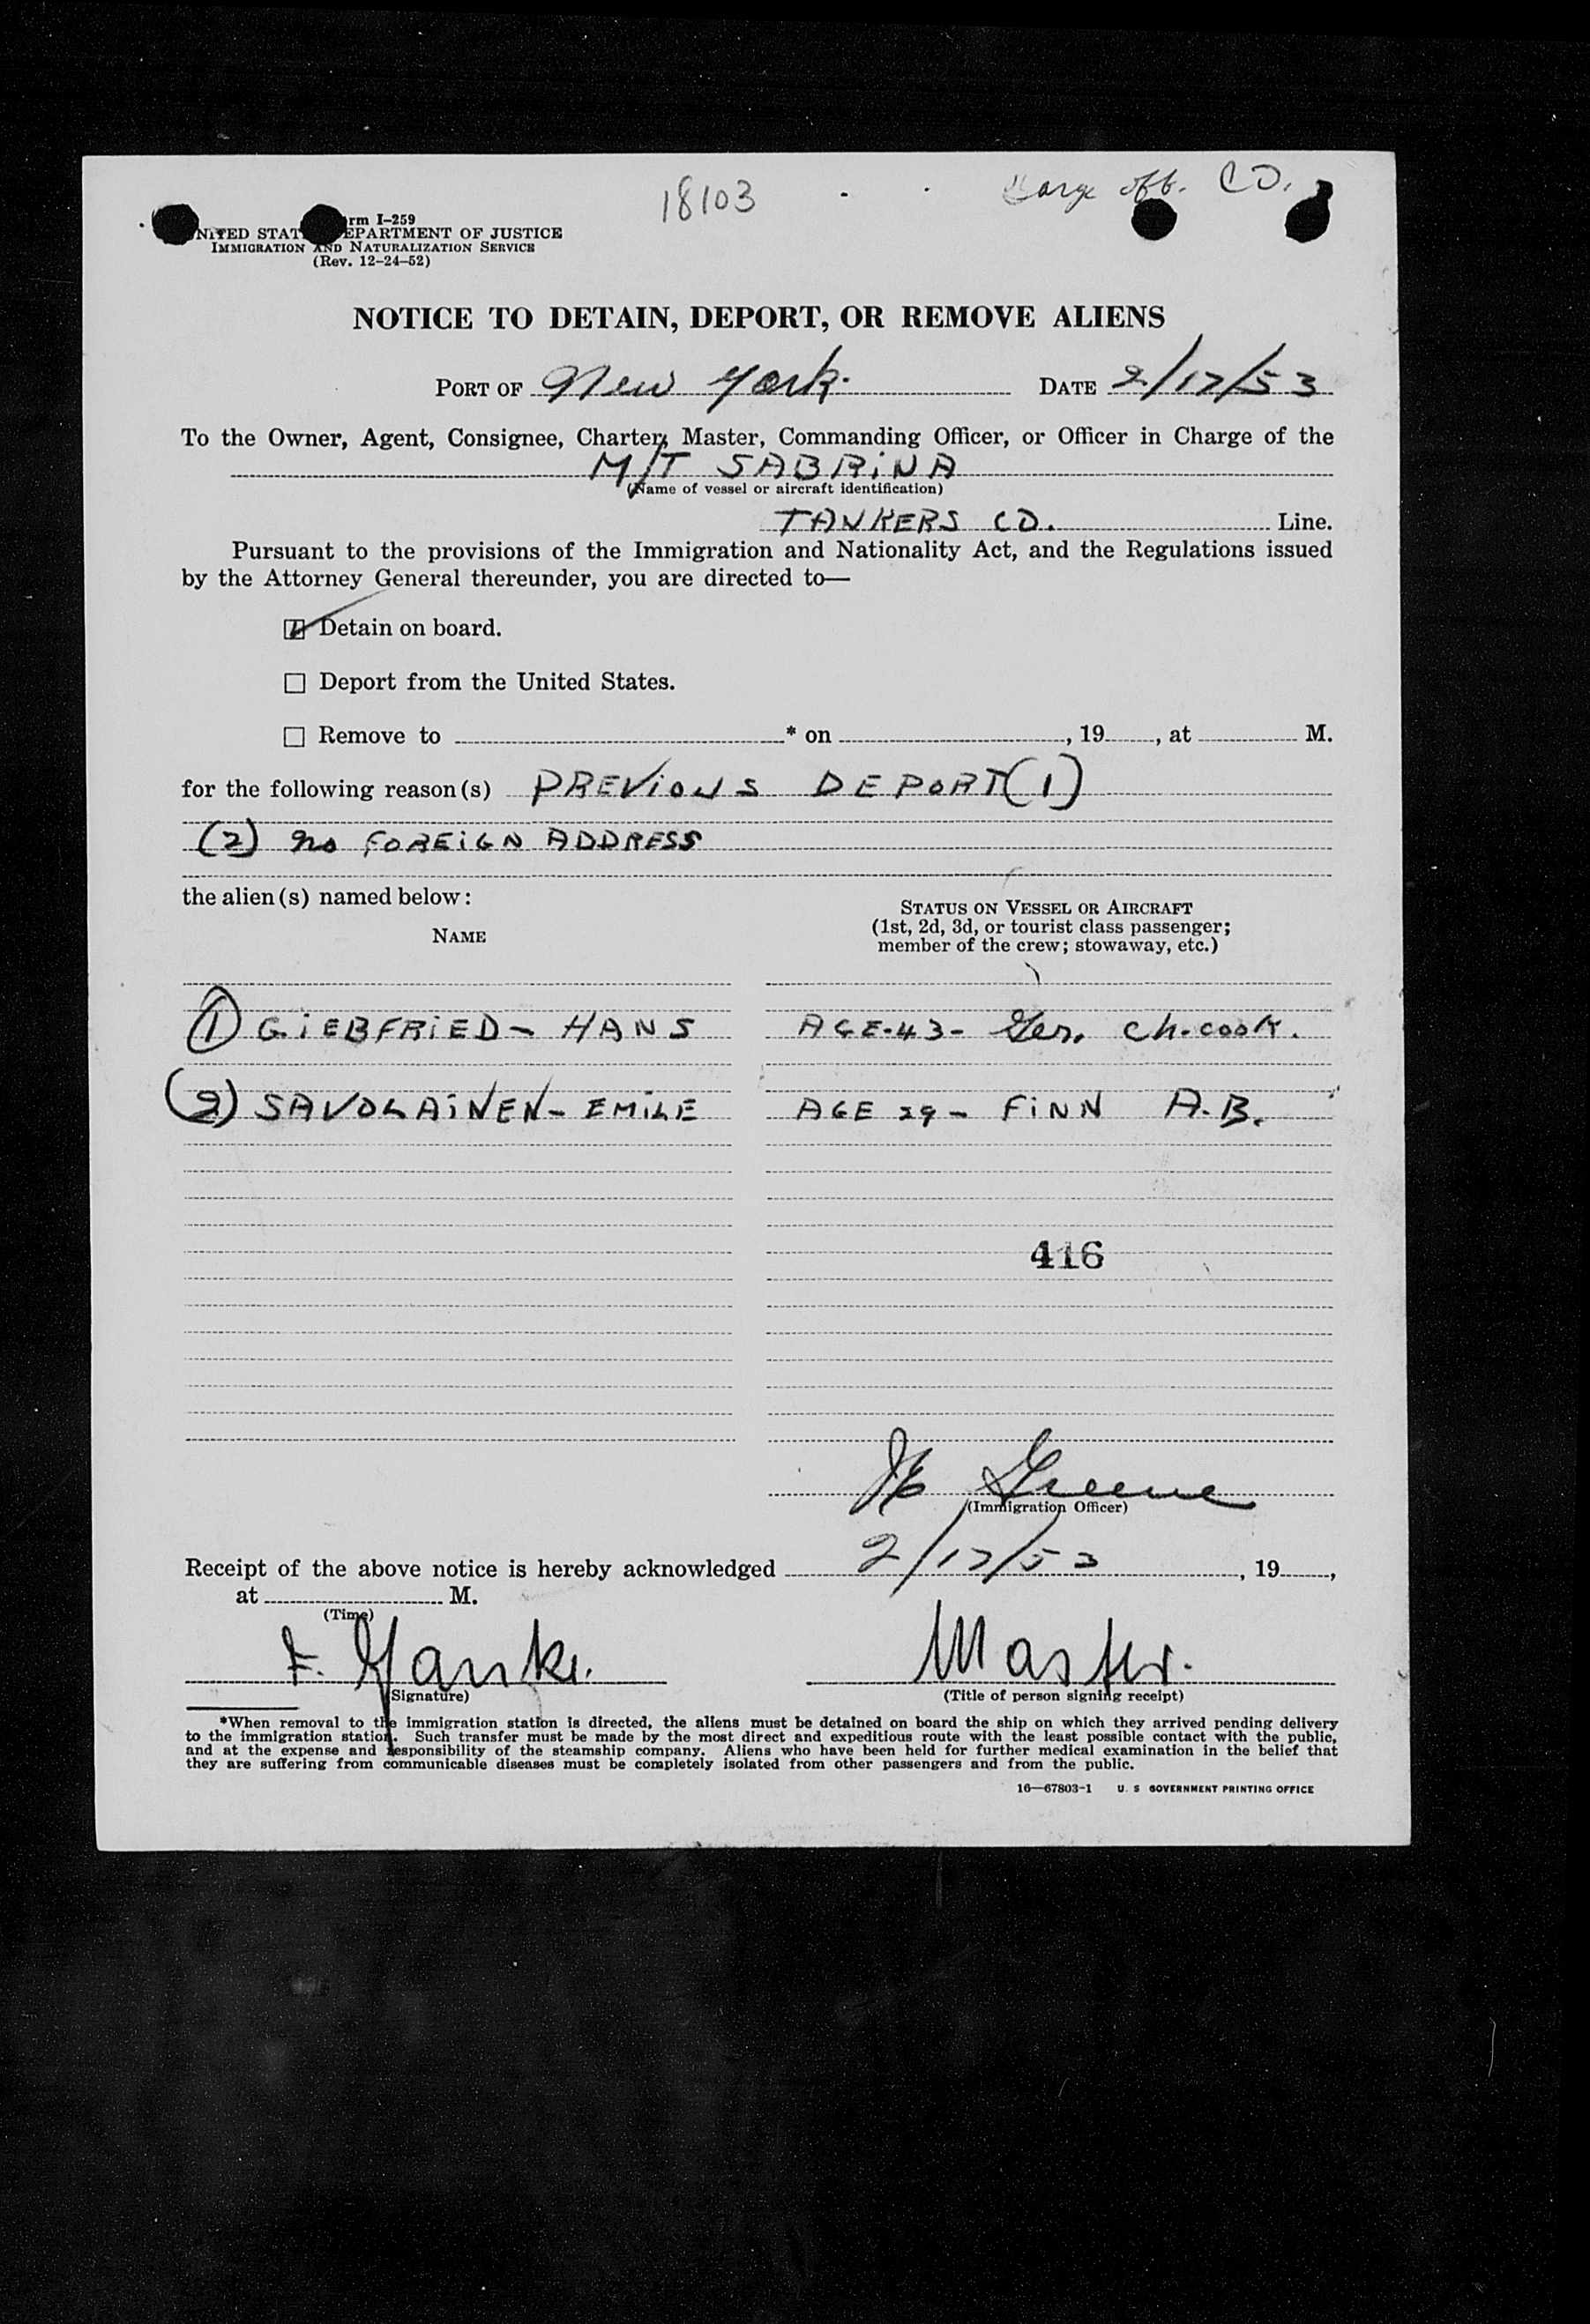 18103
off. CO.
rm I-259
NITED STAT EPARTMENT OF JUSTICE
IMMIGRATION AND NATURALIZATION SERVICE
(Rev. 12-24-52)
NOTICE TO DETAIN, DEPORT, OR REMOVE ALIENS
PORT OF New York. DATE 2/17/53
To the Owner, Agent, Consignee, Charter, Master, Commanding Officer, or Officer in Charge of the
M/T SABRINA
(Name of vessel or aircraft identification)
TANKERS CO. Line.
Pursuant to the provisions of the Immigration and Nationality Act, and the Regulations issued
by the Attorney General thereunder, you are directed to—
Detain on board.
Deport from the United States.
Remove to * on , 19 , at M.
for the following reason(s) PREVIOUS DEPORT (1)
(2) no FOREIGN ADDRESS
the alien(s) named below:
STATUS ON VESSEL OR AIRCRAFT
(1st, 2d, 3d, or tourist class passenger;
member of the crew; stowaway, etc.)
NAME
(1) GIEBFRIED - HANS AGE-43- Ger. Ch. cook.
(2) SAVOLAINEN - EMILE AGE 29 - FINN A.B.
416
Greene
(Immigration Officer)
Receipt of the above notice is hereby acknowledged 2/17/53 , 19 ,
at M.
(Time)
F. Master.
(Signature) (Title of person signing receipt)
*When removal to the immigration station is directed, the aliens must be detained on board the ship on which they arrived pending delivery
to the immigration station. Such transfer must be made by the most direct and expeditious route with the least possible contact with the public,
and at the expense and responsibility of the steamship company. Aliens who have been held for further medical examination in the belief that
they are suffering from communicable diseases must be completely isolated from other passengers and from the public.
16—67803-1 U. S GOVERNMENT PRINTING OFFICE